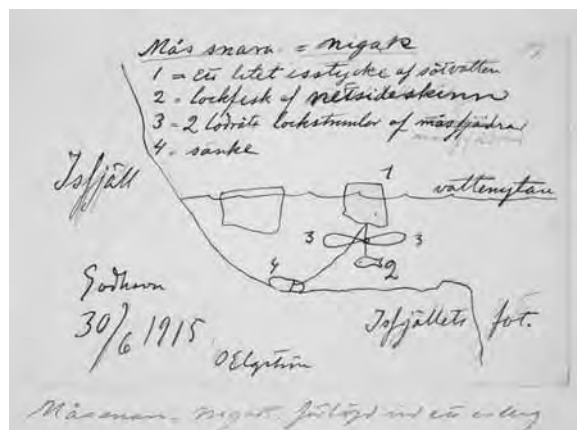 Mås snara = nigak
1 = Ett litet isstycke af sötvatten
2 = lockfisk af netsideskinn
3 = 2 lodräta lockstrumlor af måsfjädrar
4 = sänke
Isfjäll
1
vattenytan
3 3
4 2
Godhavn
30/6 1915
Isfjällets fot.
OElgström
nigak